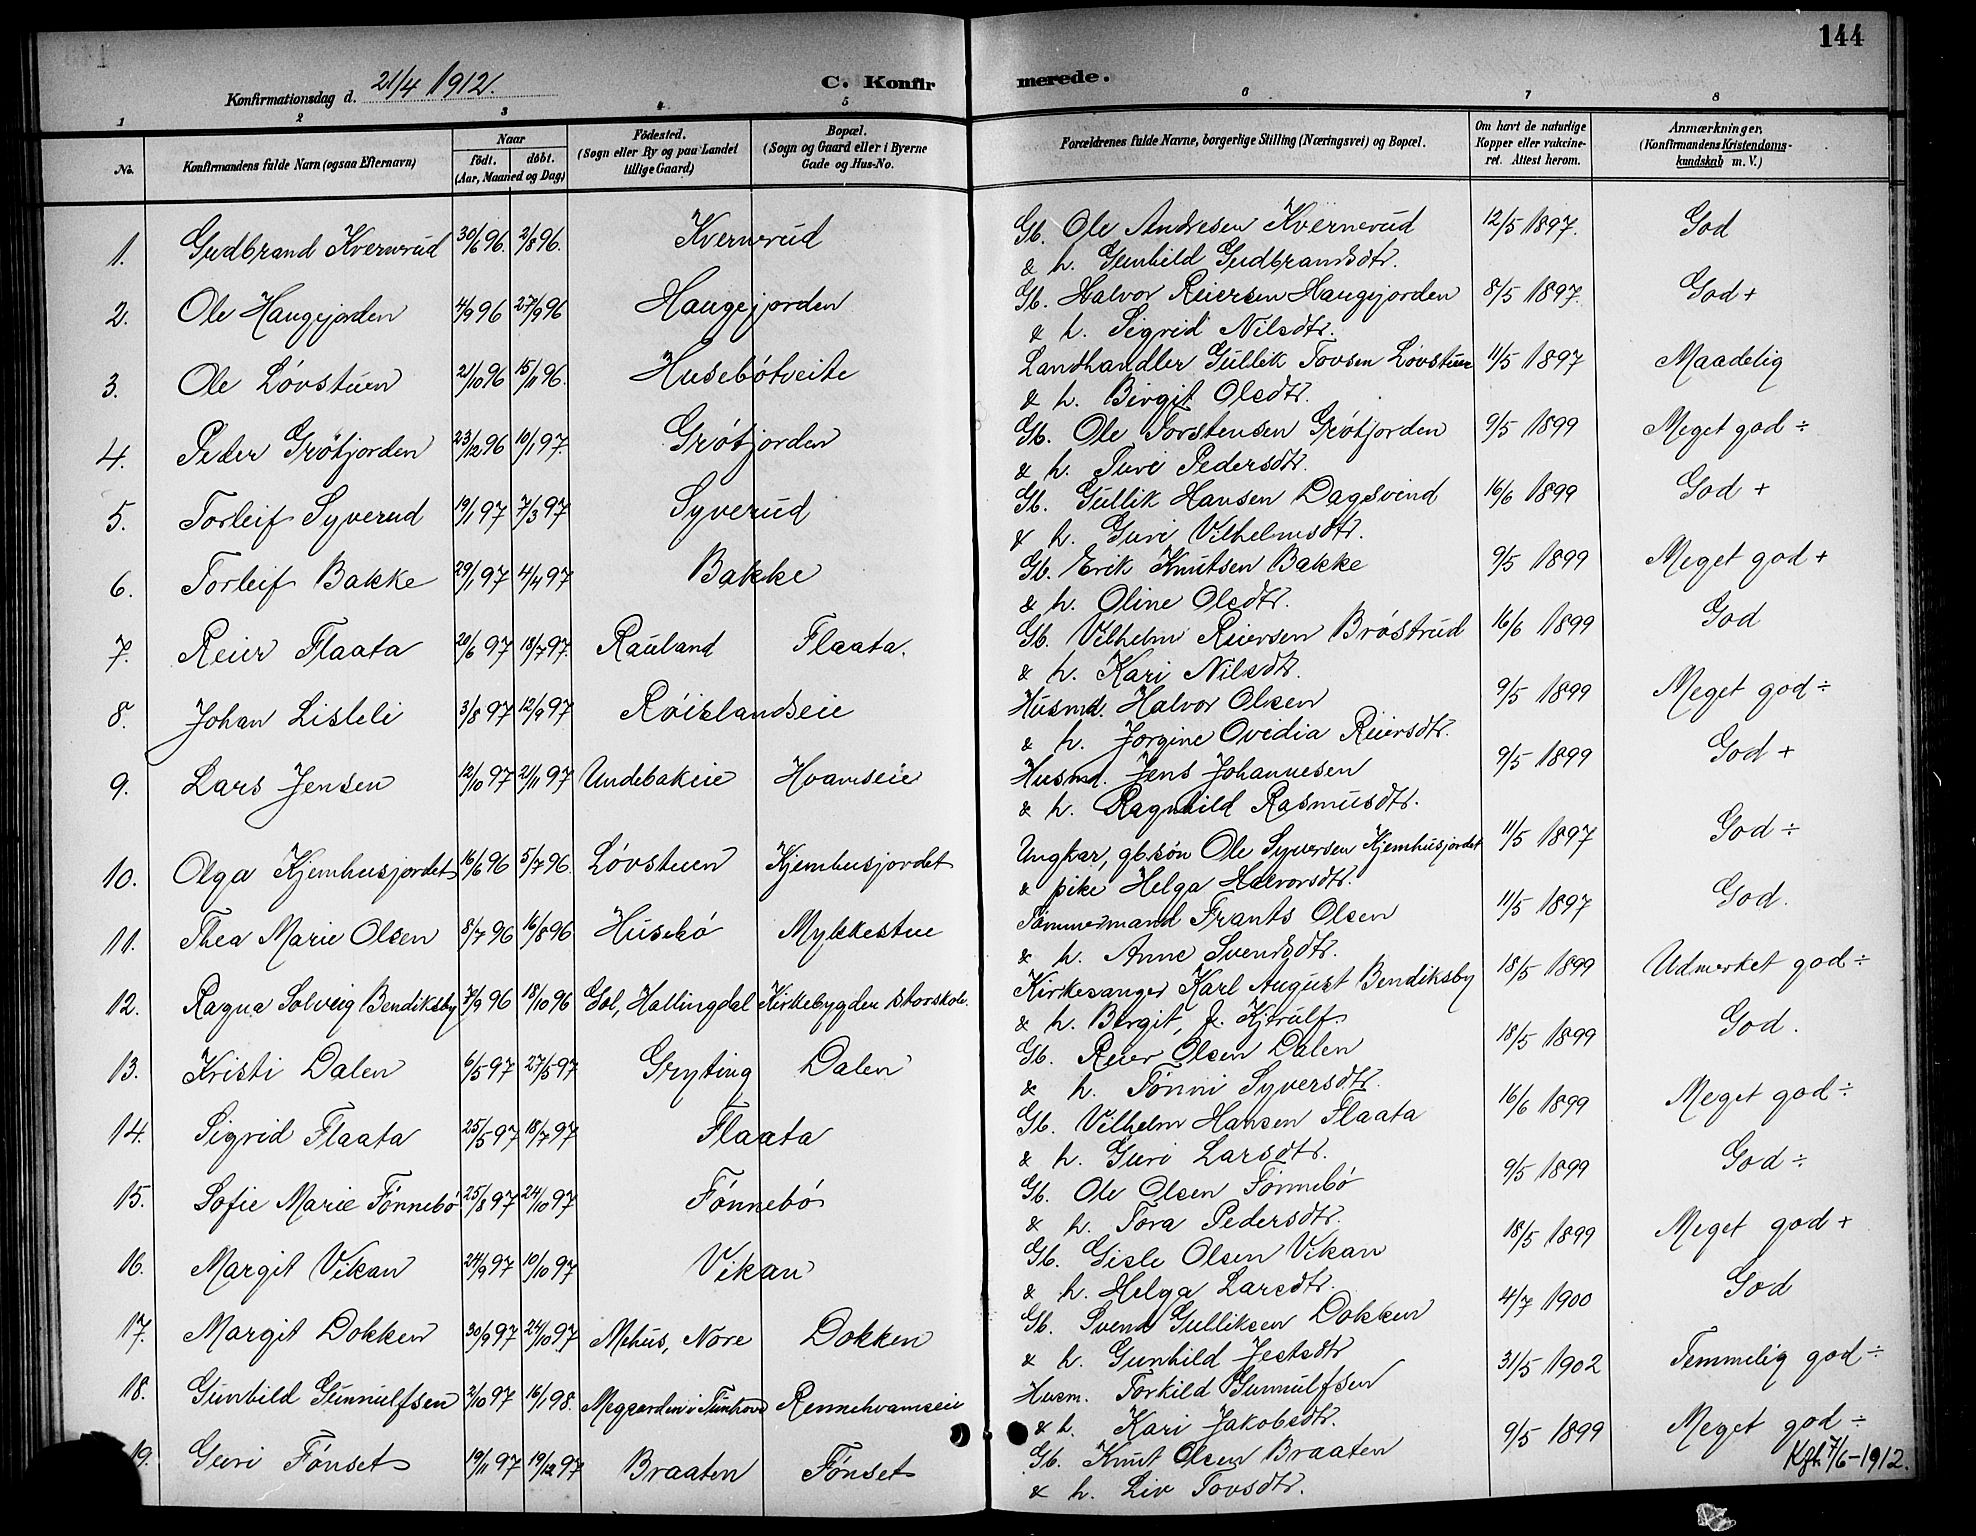 144
Konfirmationsdag d. 21/4 1912.
C. Konfirmerede.
1 2 3 4 5 6 7 8
No. Konfirmandens fulde Navn (ogsaa Efternavn) Naar født. døbt. (Aar, Maaned og Dag) Fødested. (Sogn eller By og paa Landet tillige Gaard) Bopæl. (Sogn og Gaard eller i Byerne Gade og Hus-No. Forældrenes fulde Navne, borgerlige Stilling (Næringsvei) og Bopæl. Om havt de naturlige Kopper eller vaccineret. Attest herom. Anmærkninger. (Konfirmandens Kristendomskundskab m. V.)
1. Gudbrand Kvernerud 30/6 96. 2/8 96. Kvernerud Gb. Ole Andresen Kvernerud 12/5 1897. God
& h. Gunhild Gudbrandsdtr.
2. Ole Haugejorden 4/9 96 27/9 96 Haugejorden Gb. Halvor Reiersen Haugejorden 8/5 1897 God +
& h. Sigrid Nilsdtr.
3. Ole Løvstuen 21/10 96 15/11 96. Husebøtveite Landhandler Gullik Tovsen Løvstuen 11/5 1897 Maadelig
& h. Birgit Olsdtr.
4. Peder Grøtjorden 23/12 96 10/1 97. Grøtjorden Gb. Ole Torstensen Grøtjorden 9/5 1899 Meget god ÷
& h. Turi Pedersdtr.
5. Torleif Syverud 19/1 97 7/3 97 Syverud Gb. Gullik Hansen Dagsvind 16/6 1899 God +
& h. Guri Vilhelmsdtr.
6. Torleif Bakke 29/1 97 4/4 97 Bakke Gb. Erik Knutsen Bakke 9/5 1899 Meget god +
& h. Oline Olsdtr.
7. Reier Flaata 20/6 97 18/7 97. Rauland Flaata. Gb. Vilhelm Reiersen Brøstrud 16/6 1899 God
& h. Kari Nilsdtr.
8. Johan Lisleli 3/8 97 12/9 97 Røislandseie Husmd. Halvor Olsen 9/5 1899 Meget god ÷
& h. Jorgine Ovidia Reiersdtr.
9. Lars Jensen 12/10 97 21/11 97 Undebakeie Hvamseie Husmd. Jens Johannesen 9/5 1899 God +
& h. Ragnhild Rasmusdtr.
10. Olga Kjemhusjordet 16/6 96 5/7 96. Løvstuen Kjemhusjordet Ungkar, gb.søn Ole Syversen Kjemhusjordet 11/5 1897 God ÷
& pike Helga Halvorsdtr.
11. Thea Marie Olsen 8/7 96 16/8 96 Husebø Mykkestue Tømmermand Frants Olsen 11/5 1897 God.
& h. Anne Svendsdtr.
12. Ragna Solveig Bendiksby 7/9 96 18/10 96 Gol, Hallingdal Kirkebygden storskole. Kirkesanger Karl August Bendiksby 18/5 1899 Udmerket god ÷
& h. Bergit, f. Kjerulf.
13. Kristi Dalen 6/5 97 27/5 97 Gryting Dalen Gb. Reier Olsen Dalen 18/5 1899 God.
& h. Tønni Syversdtr.
14. Sigrid Flaata 25/5 97 18/7 97 Flaata Gb. Vilhelm Hansen Flaata 16/6 1899 Meget god ÷
& h. Guri Larsdtr.
15. Sofie Marie Fønnebø 25/8 97 24/10 97 Fønnebø Gb. Ole Olsen Fønnebø 9/5 1899 God ÷
& h. Tora Pedersdtr.
16. Margit Vikan 24/9 97 10/10 97 Vikan Gb. Gisle Olsen Vikan 18/5 1899 Meget god +
& h. Helga Larsdtr.
17. Margit Dokken 30/9 97 24/10 97 Mehus, Nore Dokken Gb. Svend Gulliksen Dokken 4/7 1900 God
& h. Gunhild Jestsdtr
18. Gunhild Gunnulfsen 2/10 97 16/1 98. Megaarden i Tunhovd Rennehvamseie Husm. Torkild Gunnulfsen 31/5 1902 Temmelig god ÷
& h. Kari Jakobsdtr.
19. Guri Fønset 19/11 97 19/12 97 Braaten Fønset Gb. Knut Olsen Braaten 9/5 1899 Meget god ÷
& h. Liv Tovsdtr. 7/6-1912.